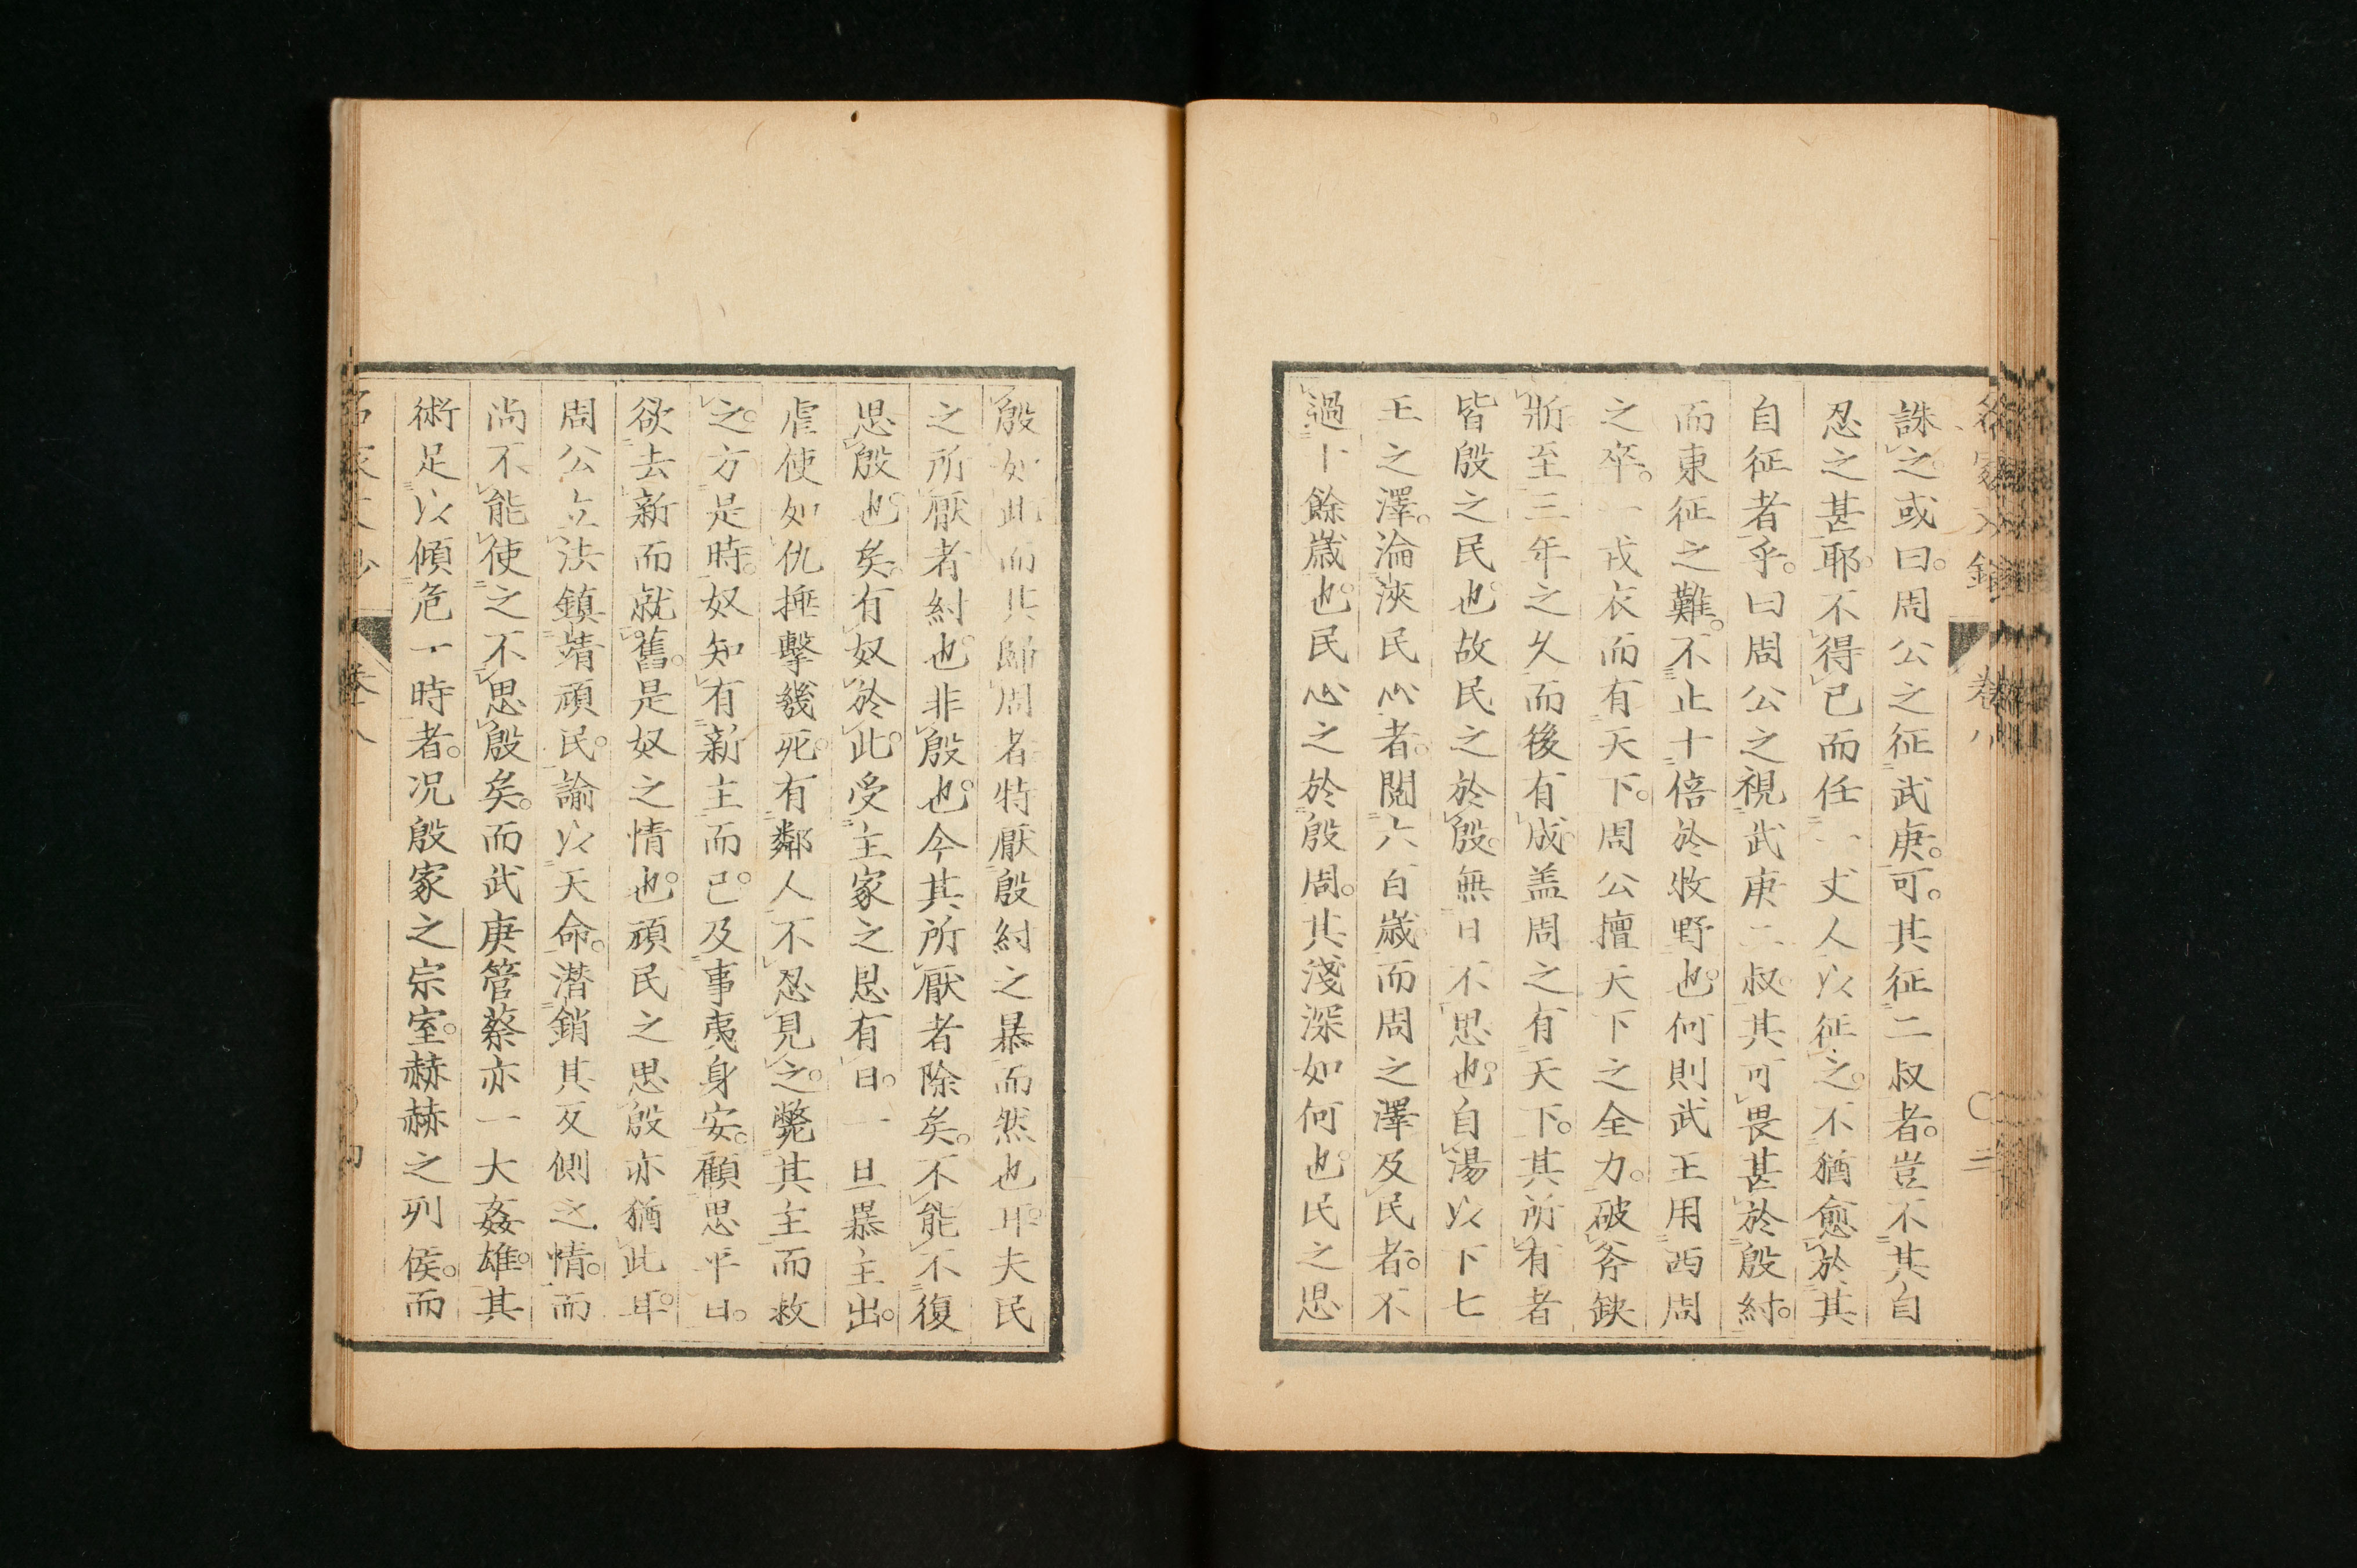 誅之或曰。周公之征武庚。可。其征二叔者。豈不其自
忍之甚耶。不得已而任一丈人以征之。不猶愈於其
自征者乎。曰周公之視武庚二叔。其可畏甚於殷紂。
而東征之難。不止十倍於牧野也。何則武王用西周
之卒。一戎衣而有天下。周公擅天下之全力。破斧缺
斨至三年之久而後有成。盖周之有天下。其所有者
皆殷之民也。故民之於殷。無日不思也。自湯以下七
王之澤。淪浹民心者。閱六百歲。而周之澤及民者。不
過十餘歲也。民心之於殷周。其淺深如何也。民之思
殷如此而其歸周者特厭殷紂之暴而然也耳。夫民
之所厭者紂也。非殷也。今其所厭者除矣。不能不復
思殷也矣。有奴於此。受主家之恩有日。一旦暴主出。
虐使如仇捶擊幾死。有鄰人不忍見之。斃其主而救
之。方是時。奴知有新主而已。及事夷身安。顧思平日。
欲去新而就舊。是奴之情也。頑民之思殷亦猶此耳。
周公立法鎮靖頑民。諭以天命。潜銷其反側之情。而
尚不能使之不思殷矣。而武庚管蔡亦一大姦雄。其
術足以傾危一時者。况殷家之宗室。赫赫之列侯。而
卷八